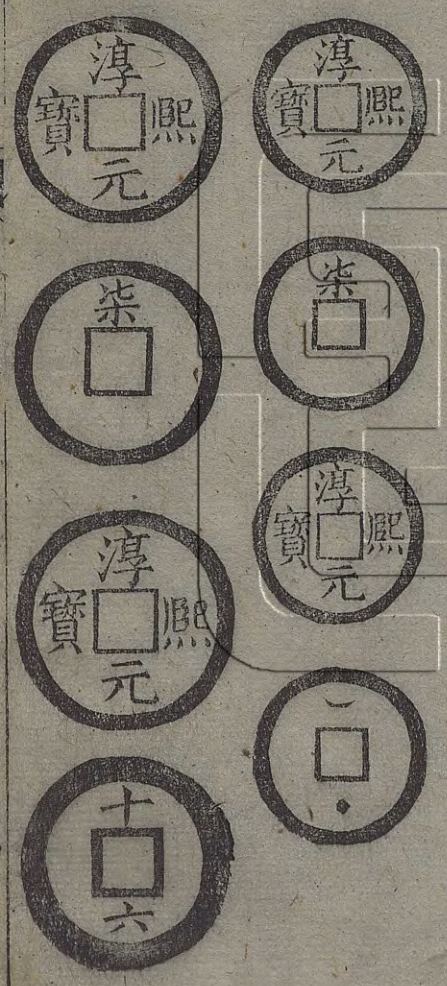 淳熙元寶
柒
淳熙元寶
淳熙元寶
柒
淳熙元寶
十六